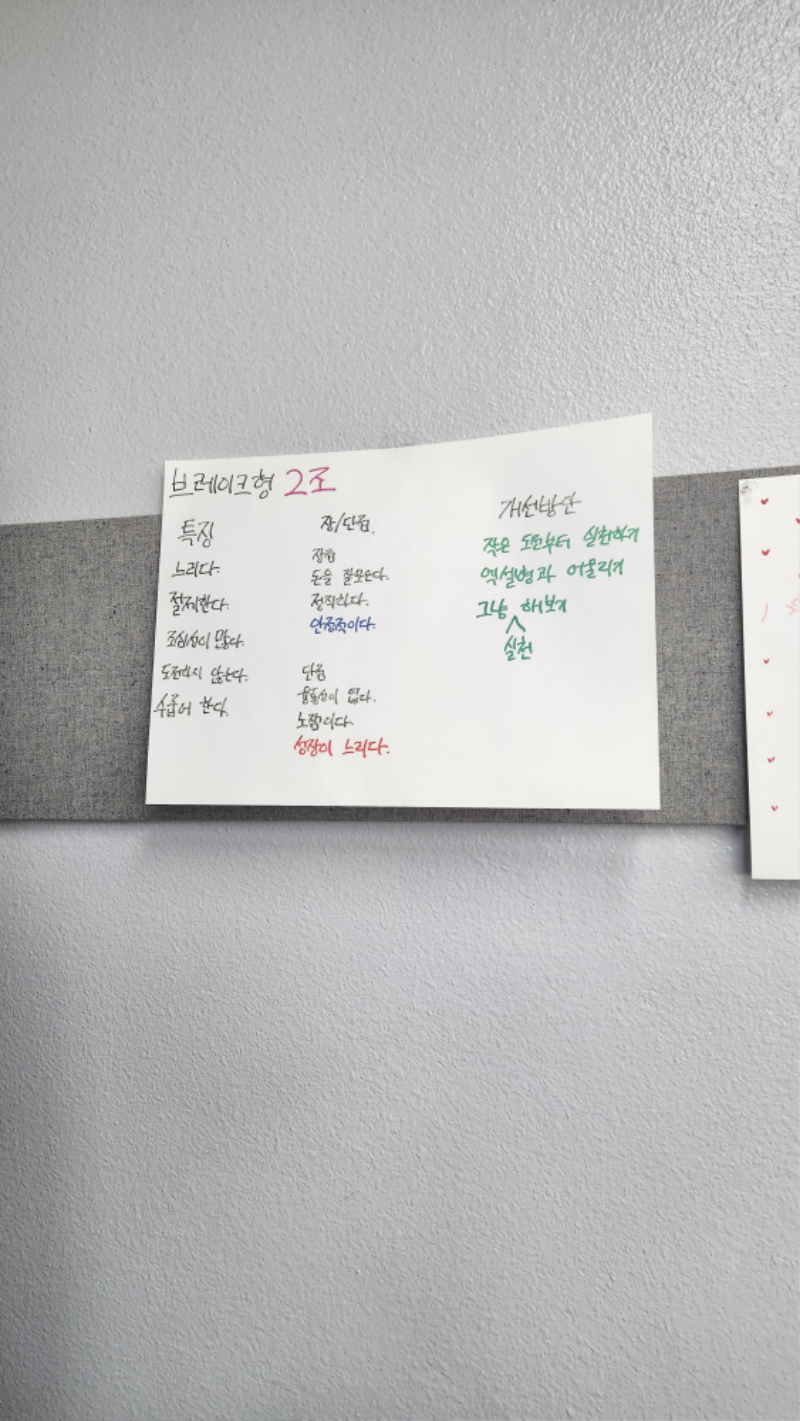 브레이크형 2조
특징
느리다.
절제한다.
조심성이 많다.
도전하지 않는다.
한다.
장/단점.
장점
돈을 잘모은다.
정직하다.
안정적이다.
단점
융통성이 없다.
노잼이다.
성장이 느리다.
개선방안
작은 도전부터 실천하기
엑셀형과 어울리기
그냥 해보기
실천